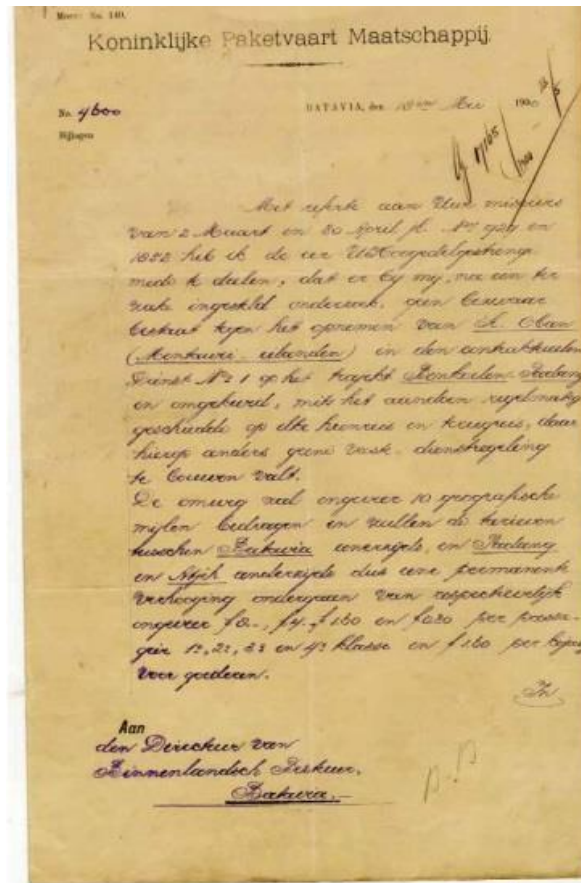 No. 140.
Koninklijke Paketvaart Maatschappij.
No. 4600
BATAVIA, den 18den Mei 1900
Bijlagen
Met referte aan Uwe missives
van 2 Maart en 20 April jl. Nos en
1822 heb ik de eer UHoogEdelgestrenge
mede te deelen, dat er bij mij, na een ter
zake ingesteld onderzoek, geen bezwaar
bestaat tegen het opnemen van
(Mentawei-eilanden) in den
Dienst No 1 op het trajekt Benkoelen-Padang
en omgekeerd, mits het aandoen regelmatig
geschiede op elke heenreis en terugreis, daar
hierop anders geene vaste dienstregeling
te bouwen valt.
De omweg zal ongeveer 10 geografische
mijlen bedragen en zullen de tarieven
tusschen Batavia eenerzijds, en Padang
en Atjeh anderzijds dus eene permanente
verhooging ondergaan van respectievelijk
ongeveer f 4.- f 1.60 en f 0.80 per passa-
gier 1e, 2e, 3e en 4e klasse en f 1.60 per
voor goederen.
In
Aan
den Directeur van
Binnenlandsch Bestuur.
Batavia.-